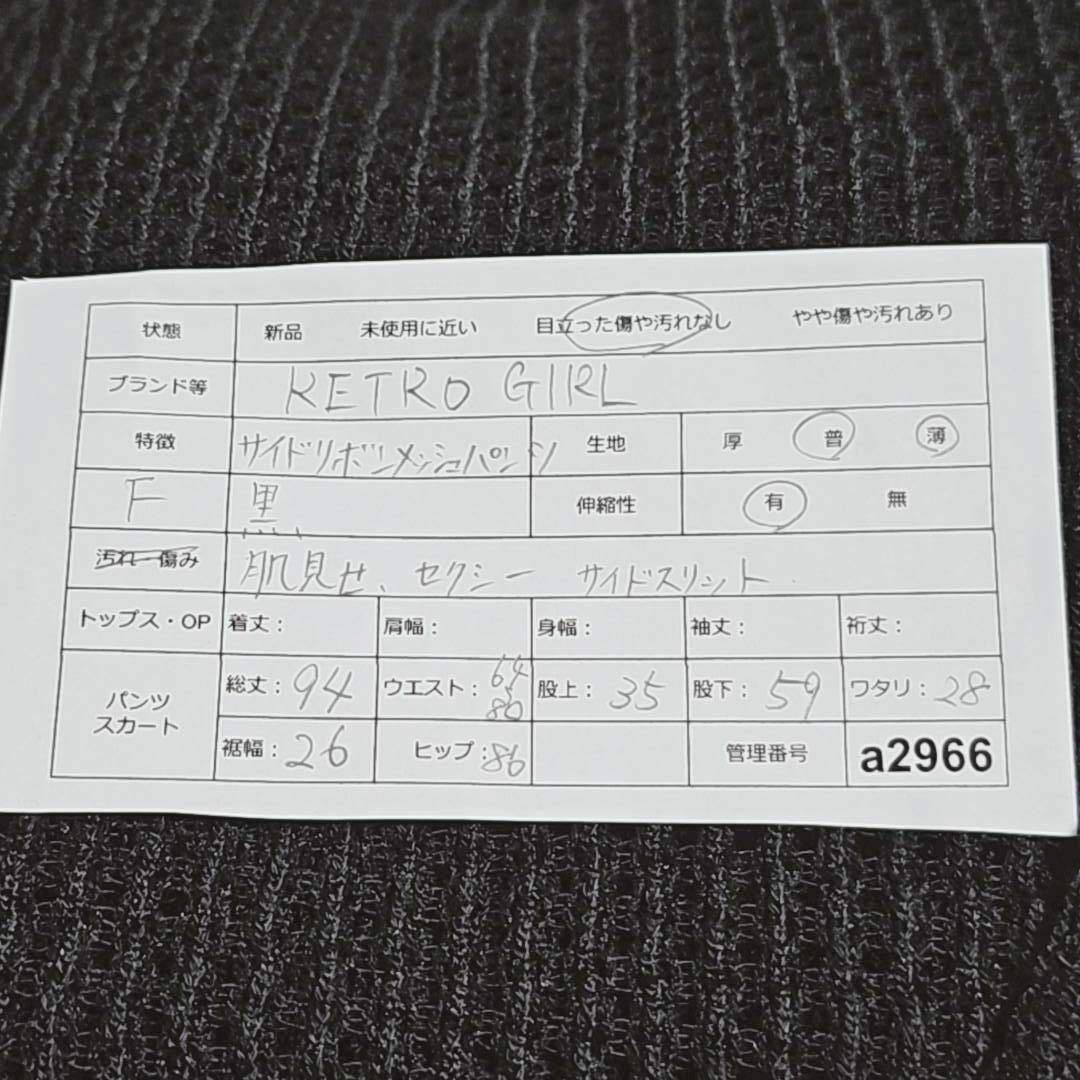 状態 新品 未使用に近い 目立った傷や汚れなし やや傷や汚れあり
ブランド等 RETRO GIRL
特徴 サイドリボンメッシュパンツ 生地 厚 普 薄
F 黒 伸縮性 有 無
汚れ・傷み 肌見せ、セクシー サイドスリット
トップス・OP 着丈: 肩幅: 身幅: 袖丈: 裄丈:
パンツ スカート 総丈: 94 ウエスト: 64 80 股上: 35 股下: 59 ワタリ: 28
裾幅: 26 ヒップ: 86 管理番号 a2966